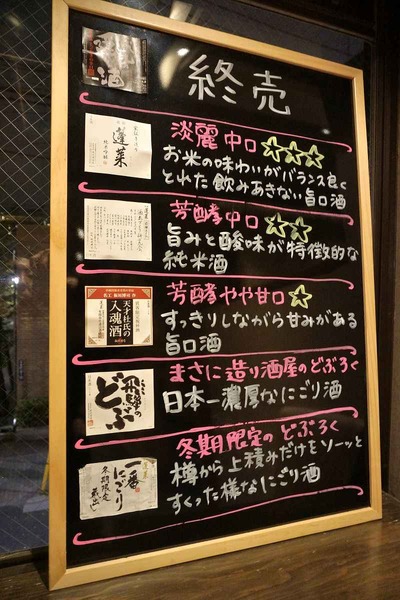 終売
淡麗中口☆☆☆
お米の味わいがバランス良く
とれた飲みあきない旨口酒
蓬莱
芳酵中口☆☆
旨みと酸味が特徴的な
純米酒
芳酵やや甘口☆
すっきりしながら甘みがある
旨口酒
天才杜氏の
入魂酒
まさに造り酒屋のどぶろく
日本一濃厚なにごり酒
飛騨の
どぶ
冬期限定のどぶろく
樽から上積みだけをソーッと
すくった様なにごり酒
一番
にごり
冬期限定
蔵出し